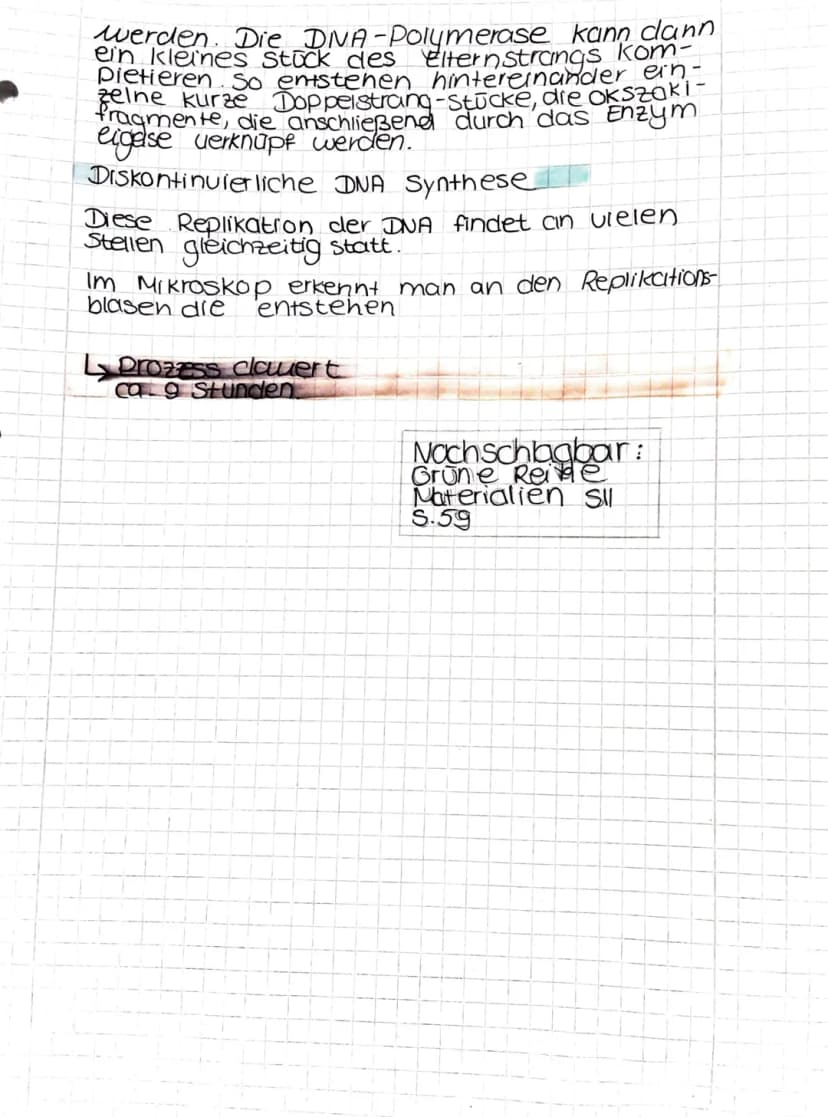 werden. Die DNA-Polymerase kann dann
ein kleines Stück des Elternstrangs kom-
pletieren. So entstehen hintereinander ein-
zelne kurze Doppelstrang-Stücke, die Okszaki-
fragmente, die anschließend durch das Enzym
eigase verknüpf werden.
Diskontinuierliche DNA Synthese
Diese Replikation der DNA findet an vielen
Stellen gleichzeitig statt.
Im Mikroskop erkennt man an den Replikations-
blasen die entstehen
↳ Prozess dauert
ca. 9 Stunden
Nachschlagbar:
Grüne Reihe
Materialien SII
S.59